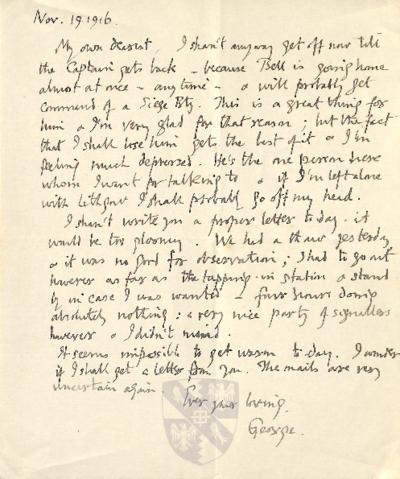 Nov. 19. 1916.
My own dearest, I shan't anyway get off now till
the Captain gets back - because Bell is going home
almost at once - any time - & will probably get
command of a Siege Bty. This is a great thing for
him & I'm very glad for that reason; but the fact
that I shall lose him gets the best of it & I'm
feeling much depressed. He's the one person here
whom I want for talking to & if I'm left alone
with Lithgow I shall probably go off my head.
I shan't write you a proper letter to-day. it
would be too gloomy. We had a thaw yesterday
& it was no good for observation; I had to go out
however as far as the tapping-in station & stand
by in case I was wanted - four hours doing
absolutely nothing: a very nice party of signallers
however & I didn't mind.
It seems impossible to get warm to-day. I wonder
if I shall get a letter from you. The mails are very
uncertain again.
Ever your loving,
George.